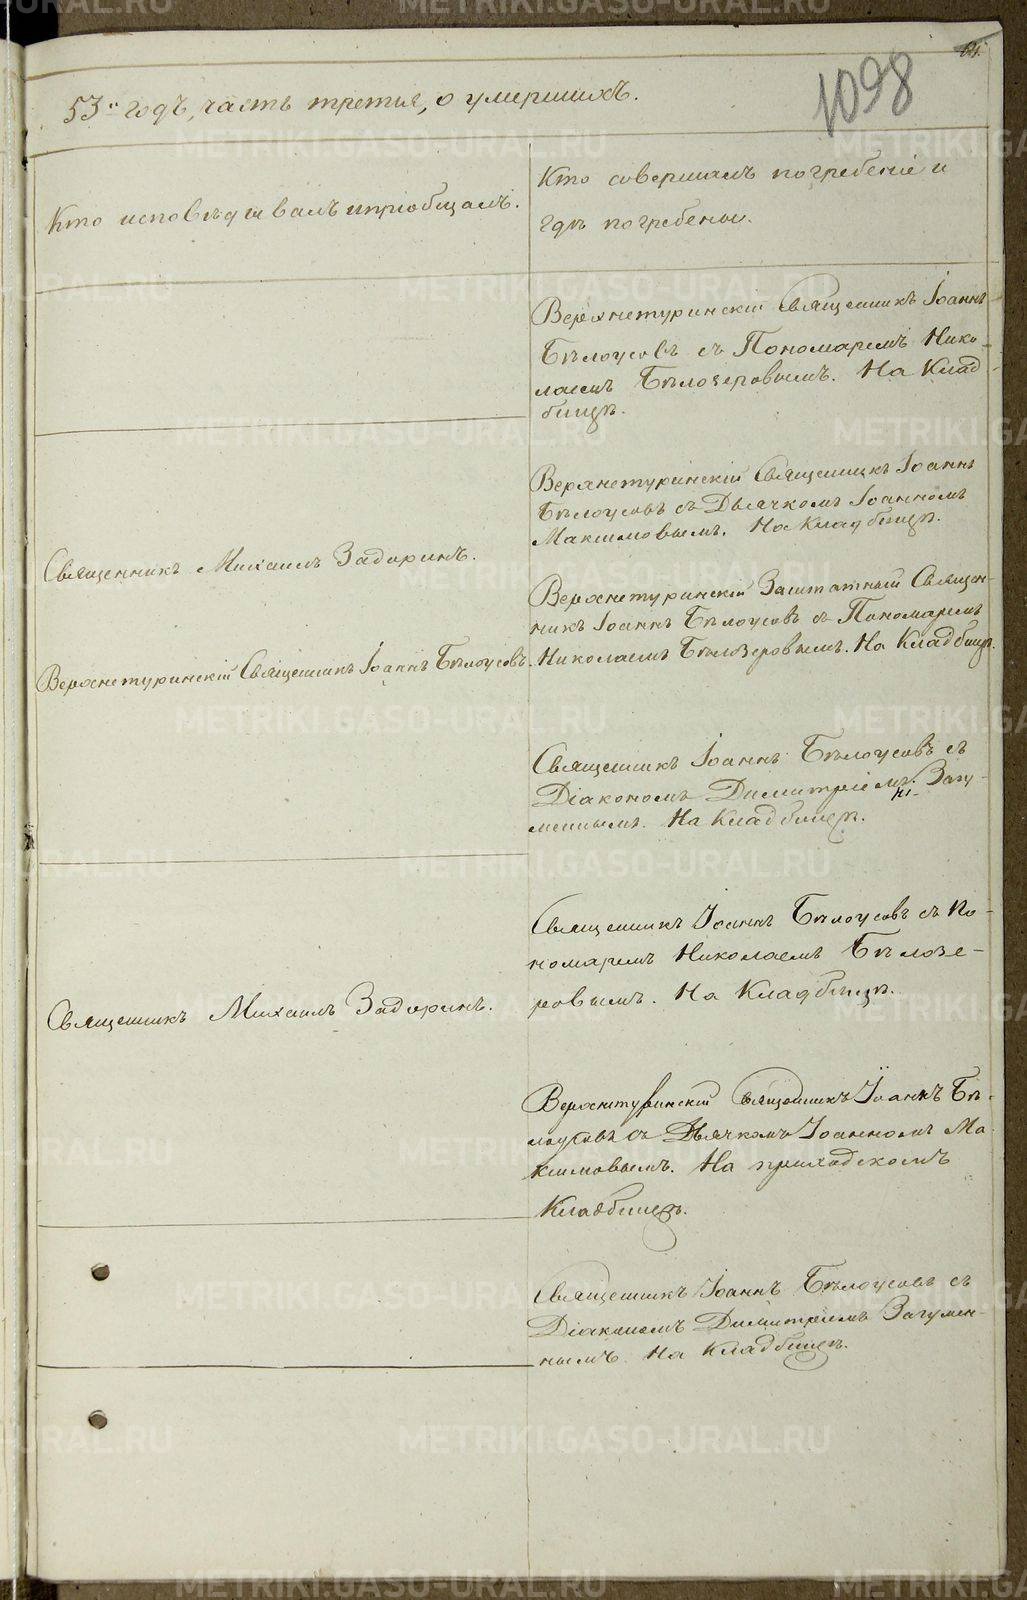 64.
1098
53й годъ, часть третья, о умершихъ.
Кто исповѣдывалъ и приобщалъ.
Кто совершалъ погребенiе и
гдѣ погребены.
Верхнетуринскiй Священникъ Iоаннъ
Бѣлоусовъ съ Пономаремъ Нико-
лаемъ Бѣлозеровымъ. На Клад
бищѣ.
Священникъ Михаилъ Задоринъ.
Верхнетуринскiй Священникъ Iоаннъ
Бѣлоусовъ съ Дьячкомъ Iоанномъ
Максимовымъ. На Кладбищѣ.
Верхнетуринскiй Священникъ Iоаннъ Бѣлоусовъ.
Верхнетуринскiй Заштатный Священ-
никъ Iоаннъ Бѣлоусовъ съ Пономаремъ
Николаемъ Бѣлозеровымъ. На Кладбищѣ.
Священникъ Iоаннъ Бѣлоусовъ съ
Дiакономъ Димитрiемъ Загу-
меннымъ. На Кладбищѣ.
Священникъ Михаилъ Задоринъ.
Священникъ Iоаннъ Бѣлоусовъ съ По-
номаремъ Николаемъ Бѣлозе-
ровымъ. На Кладбищѣ.
Верхнетуринскiй Священникъ Iоаннъ Бѣ-
лоусовъ съ Дьячкомъ Iоанномъ Ма-
ксимовымъ. На приходскомъ
Кладбищѣ.
Священникъ Iоаннъ Бѣлоусовъ съ
Дiакономъ Димитрiемъ Загумен-
нымъ. На Кладбищѣ.
METRIKI.GASO-URAL.RU